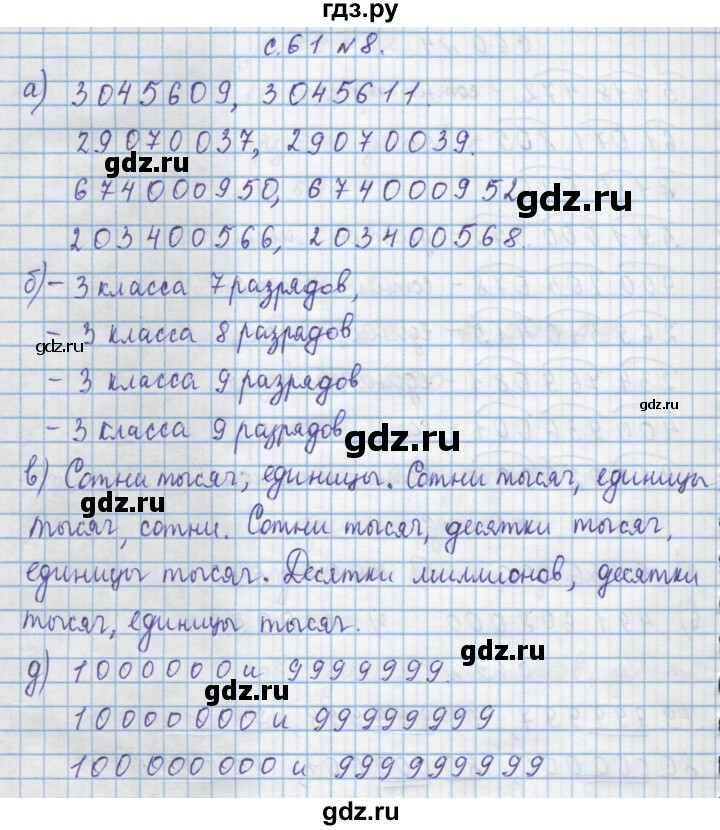 гдз.ру
с. 61 № 8.
а) 3045609, 3045611.
29070037, 29070039.
gdz.ru
674000950, 674000952
gdz.ru
203400566, 203400568.
б) - 3 класса 7 разрядов,
- 3 класса 8 разрядов
gdz.ru
- 3 класса 9 разрядов
gdz.ru
- 3 класса 9 разрядов
gdz.ru
в) Сотни тысяч, единицы. Сотни тысяч, единицы
gdz.ru
тысяч, сотни. Сотни тысяч, десятки тысяч,
единицы тысяч. Десятки миллионов, десятки
тысяч, единицы тысяч.
gdz.ru
д) 1000000 и 9999999
gdz.ru
10000000 и 99999999
100 000 000 и 999999999
gdz.ru
gdz.ru